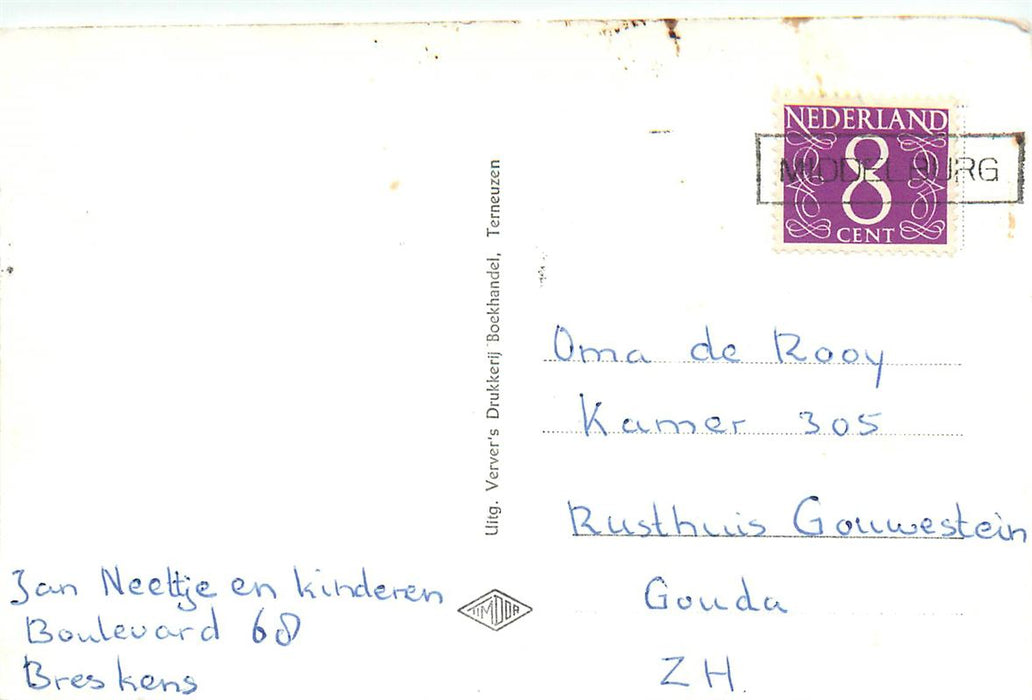 NEDERLAND
8
CENT
MIDDELBURG
Uitg. Verver's Drukkerij Boekhandel, Terneuzen
Oma de Rooy
Kamer 305
Rusthuis Gouwestein
Gouda
ZH.
Jan Neeltje en kinderen
Boulevard 68
Breskens
TIMDOR